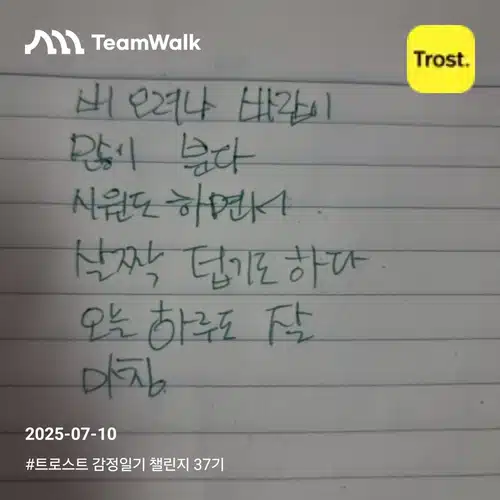 TeamWalk
Trost.
비 오려나 바람이
많이 분다
시원도 하면서
살짝 덥기도 하다
오늘 하루도 잘
마침
2025-07-10
#트로스트 감정일기 챌린지 37기